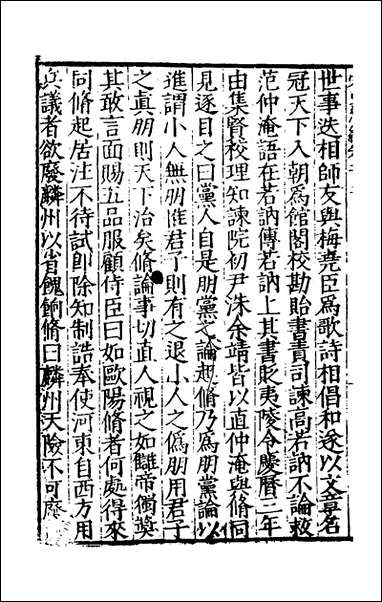 世事迭相師友與梅堯臣爲歌詩相倡和遂以文章名
冠天下入朝爲館閣校勘貽書責司諫高若訥不論救
范仲淹語在若訥傳若訥上其書貶夷陵令慶曆三年
由集賢校理知諫院初尹洙余靖皆以直仲淹與脩同
見逐目之曰黨人自是朋黨之論起脩乃爲朋黨論以
進謂小人無朋惟君子則有之退小人之僞朋用君子
之眞朋則天下治矣脩論事切直人視之如讎帝獨奬
其敢言面賜五品服顧侍臣曰如歐陽脩者何處得來
同脩起居注不待試卽除知制誥奉使河東自西方用
兵議者欲廢麟州以省餽餉脩曰麟州天險不可廢